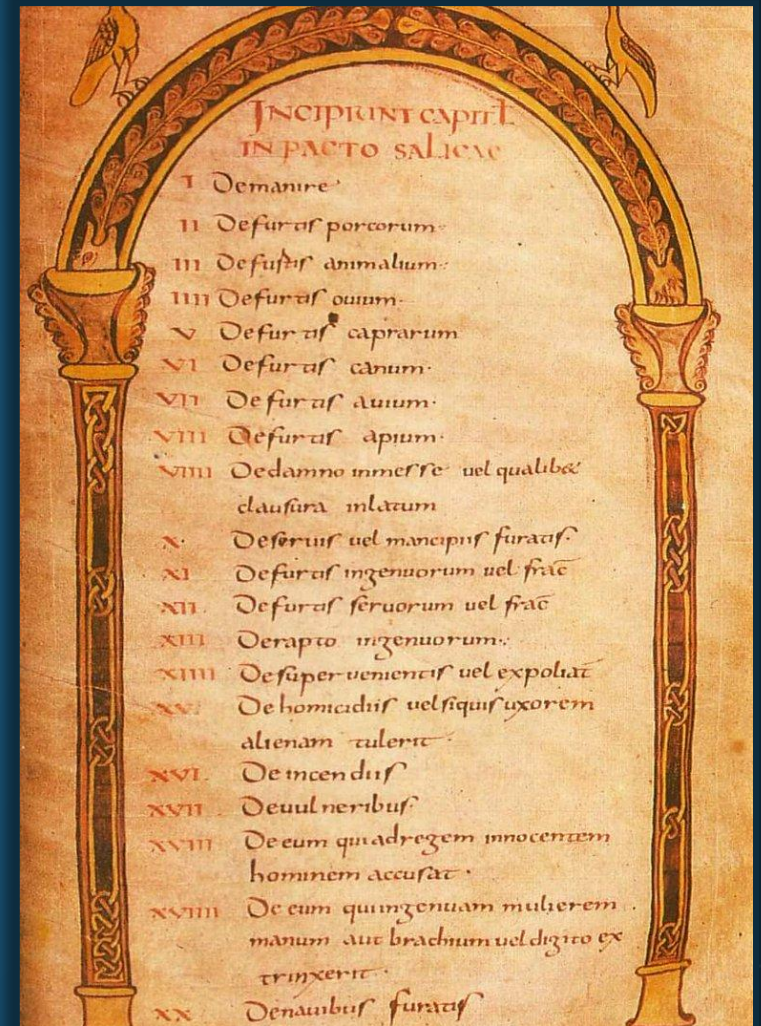 INCIPIUNT CAPITŁ
IN PACTO SALICAE
I De manire
II De furtis porcorum
III De furtis animalium
IIII De furtis ovium
V De furtis caprarum
VI De furtis canum
VII De furtis avium
VIII De furtis apium
VIIII De damno in messe vel qualibet
clausura inlatum
X De servis vel mancipiis furatis
XI De furtis ingenuorum vel frac̄
XII De furtis servorum vel frac̄
XIII De rapto ingenuorum
XIIII De superventis vel expoliat̄
XV De homicidiis vel si quis uxorem
alienam tulerit
XVI De incendiis
XVII De vulneribus
XVIII De eum qui ad regem innocentem
hominem accusat
XVIIII De eum qui ingenuam mulierem
manum aut brachium vel digito ex
trinxerit
XX De navibus furatis